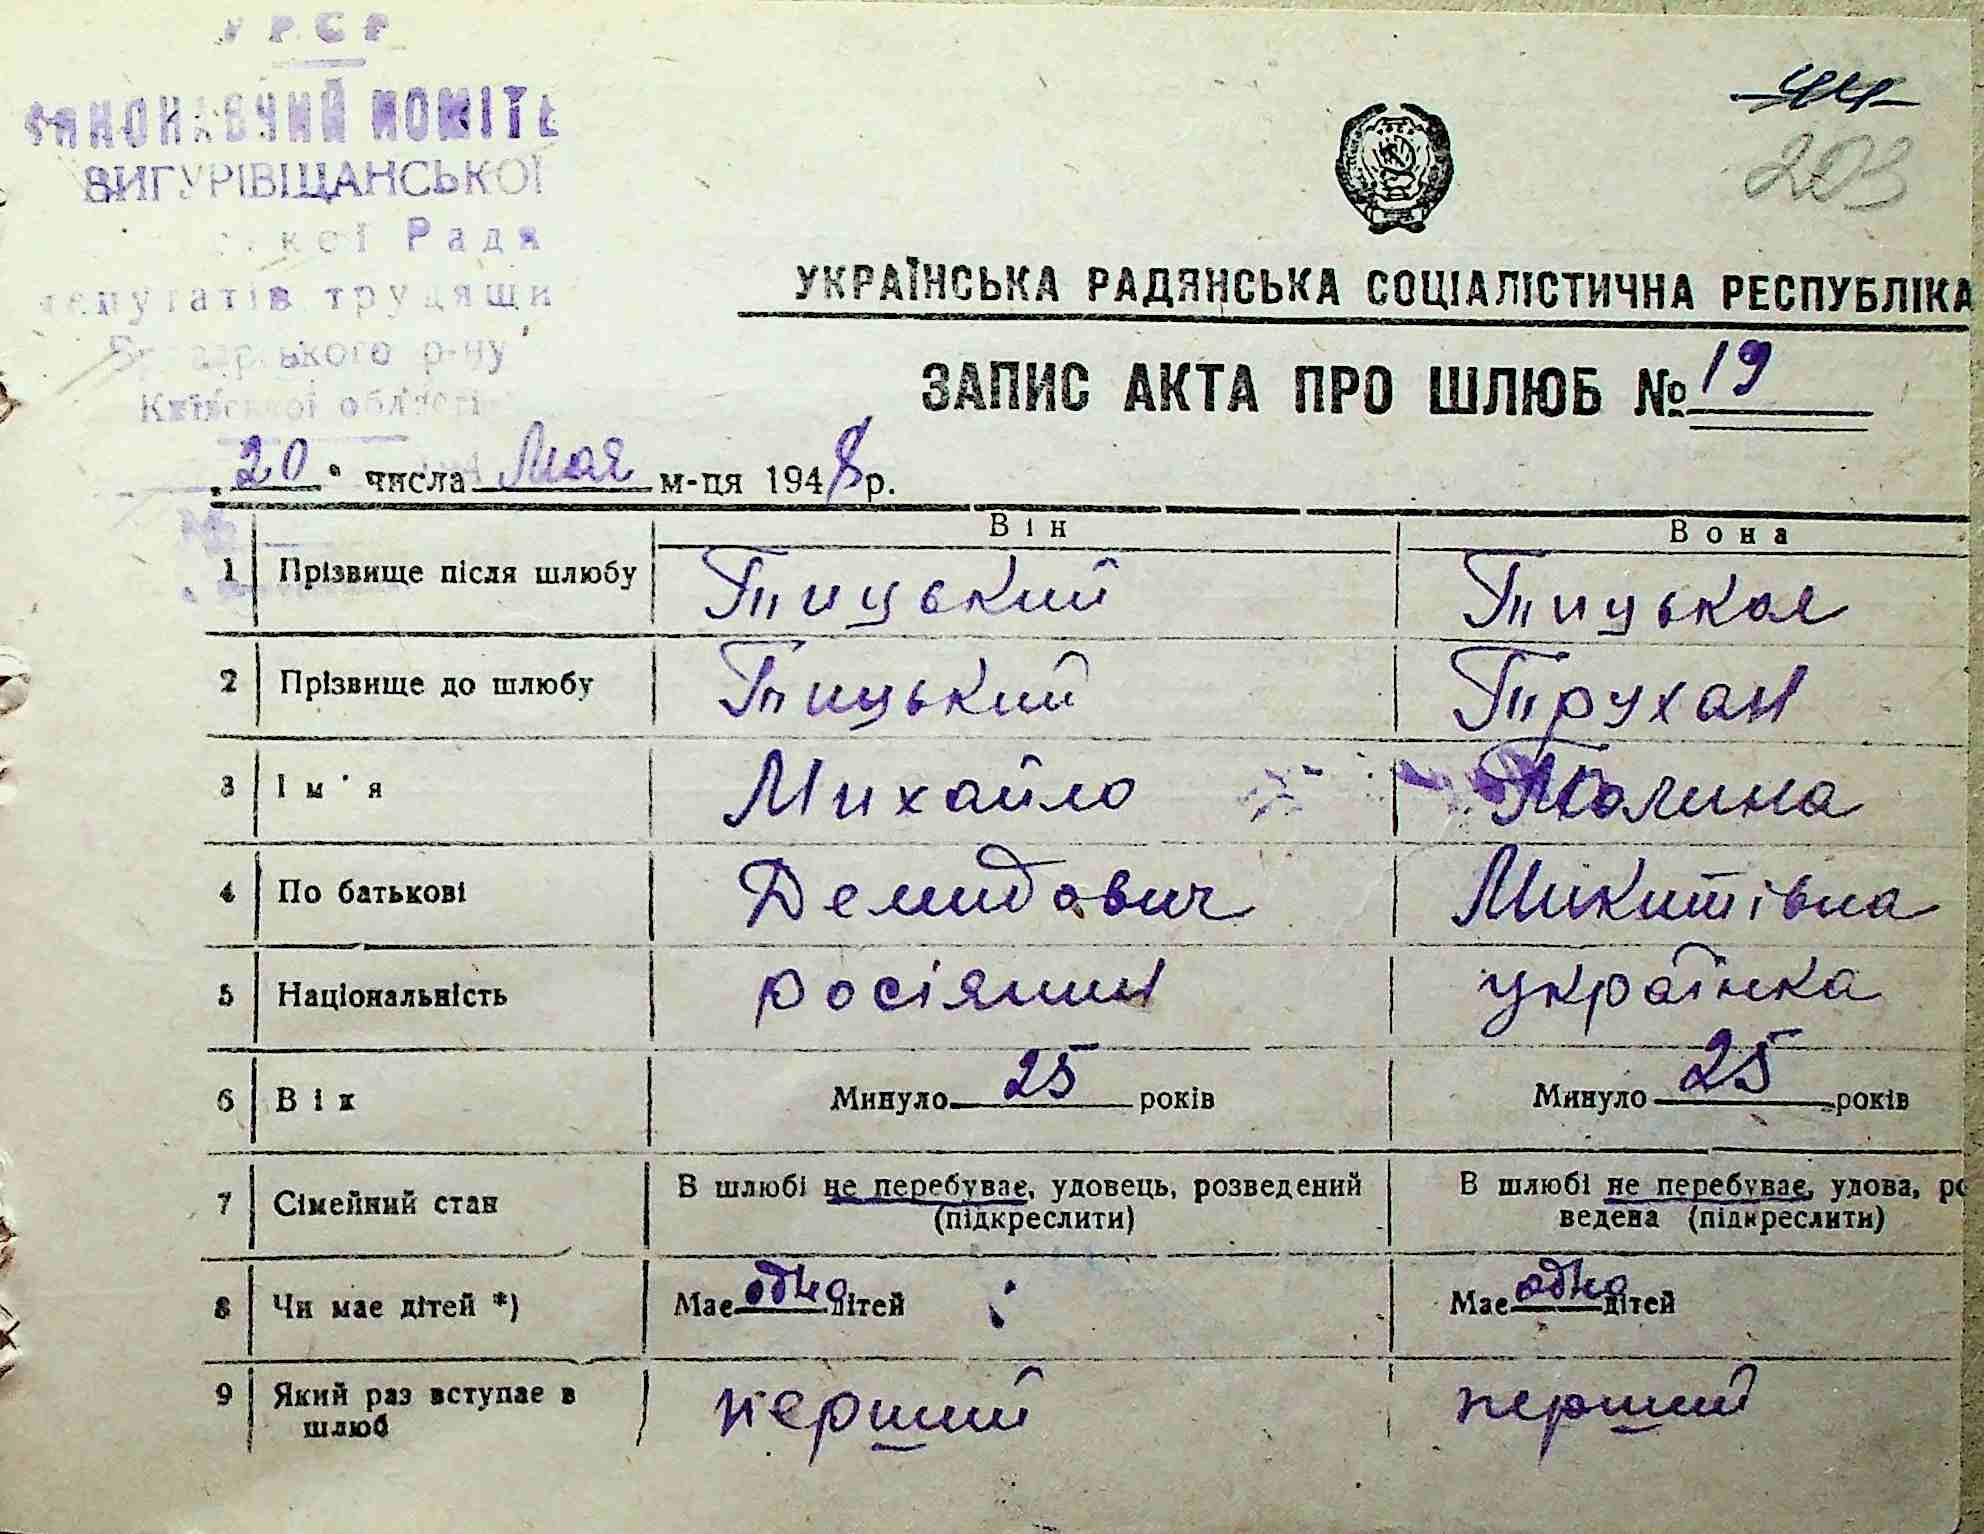 УРСР
ВИКОНАВЧИЙ КОМІТЕ
ВИГУРІВЩАНСЬКОЇ
Ради
депутатів трудящи
р-ну
Київської області
203
УКРАЇНСЬКА РАДЯНСЬКА СОЦІАЛІСТИЧНА РЕСПУБЛІКА
ЗАПИС АКТА ПРО ШЛЮБ № 19
„20" числа Мая м-ця 1948 р.
Він Вона
1 Прізвище після шлюбу Тицький Тицькая
2 Прізвище до шлюбу Тицький Трухан
3 Ім'я Михайло
4 По батькові Демидович Микитівна
5 Національність росіянин українка
6 Вік Минуло 25 років Минуло 25 років
7 Сімейний стан В шлюбі не перебуває, удовець, розведений В шлюбі не перебуває, удова, ро
(підкреслити) ведена (підкреслити)
8 Чи має дітей *) Має одно дітей Має одно дітей
9 Який раз вступає в перший перший
шлюб